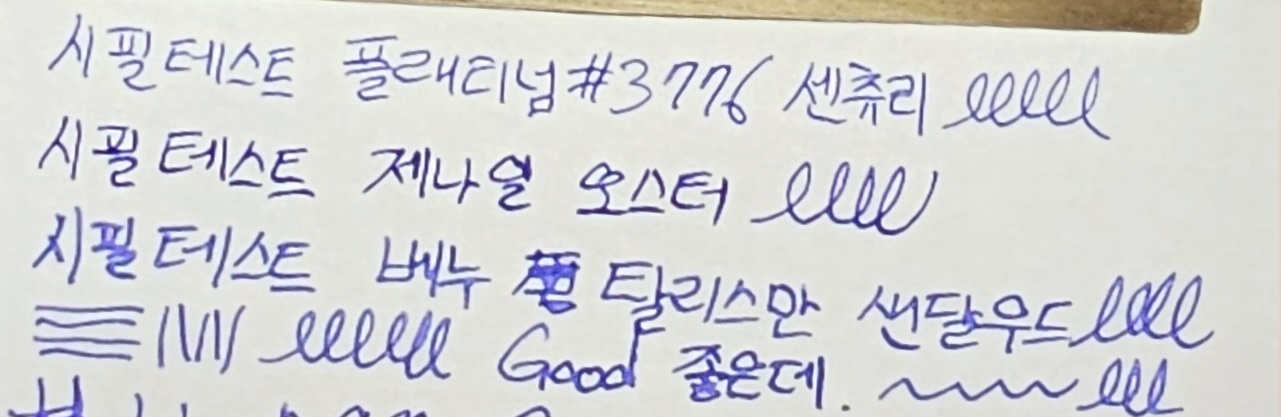 시필테스트 플래티넘#3776 센츄리
시필테스트 제나일 오스터
시필테스트 베누 탈리스만 샌달우드
Good 좋은데.